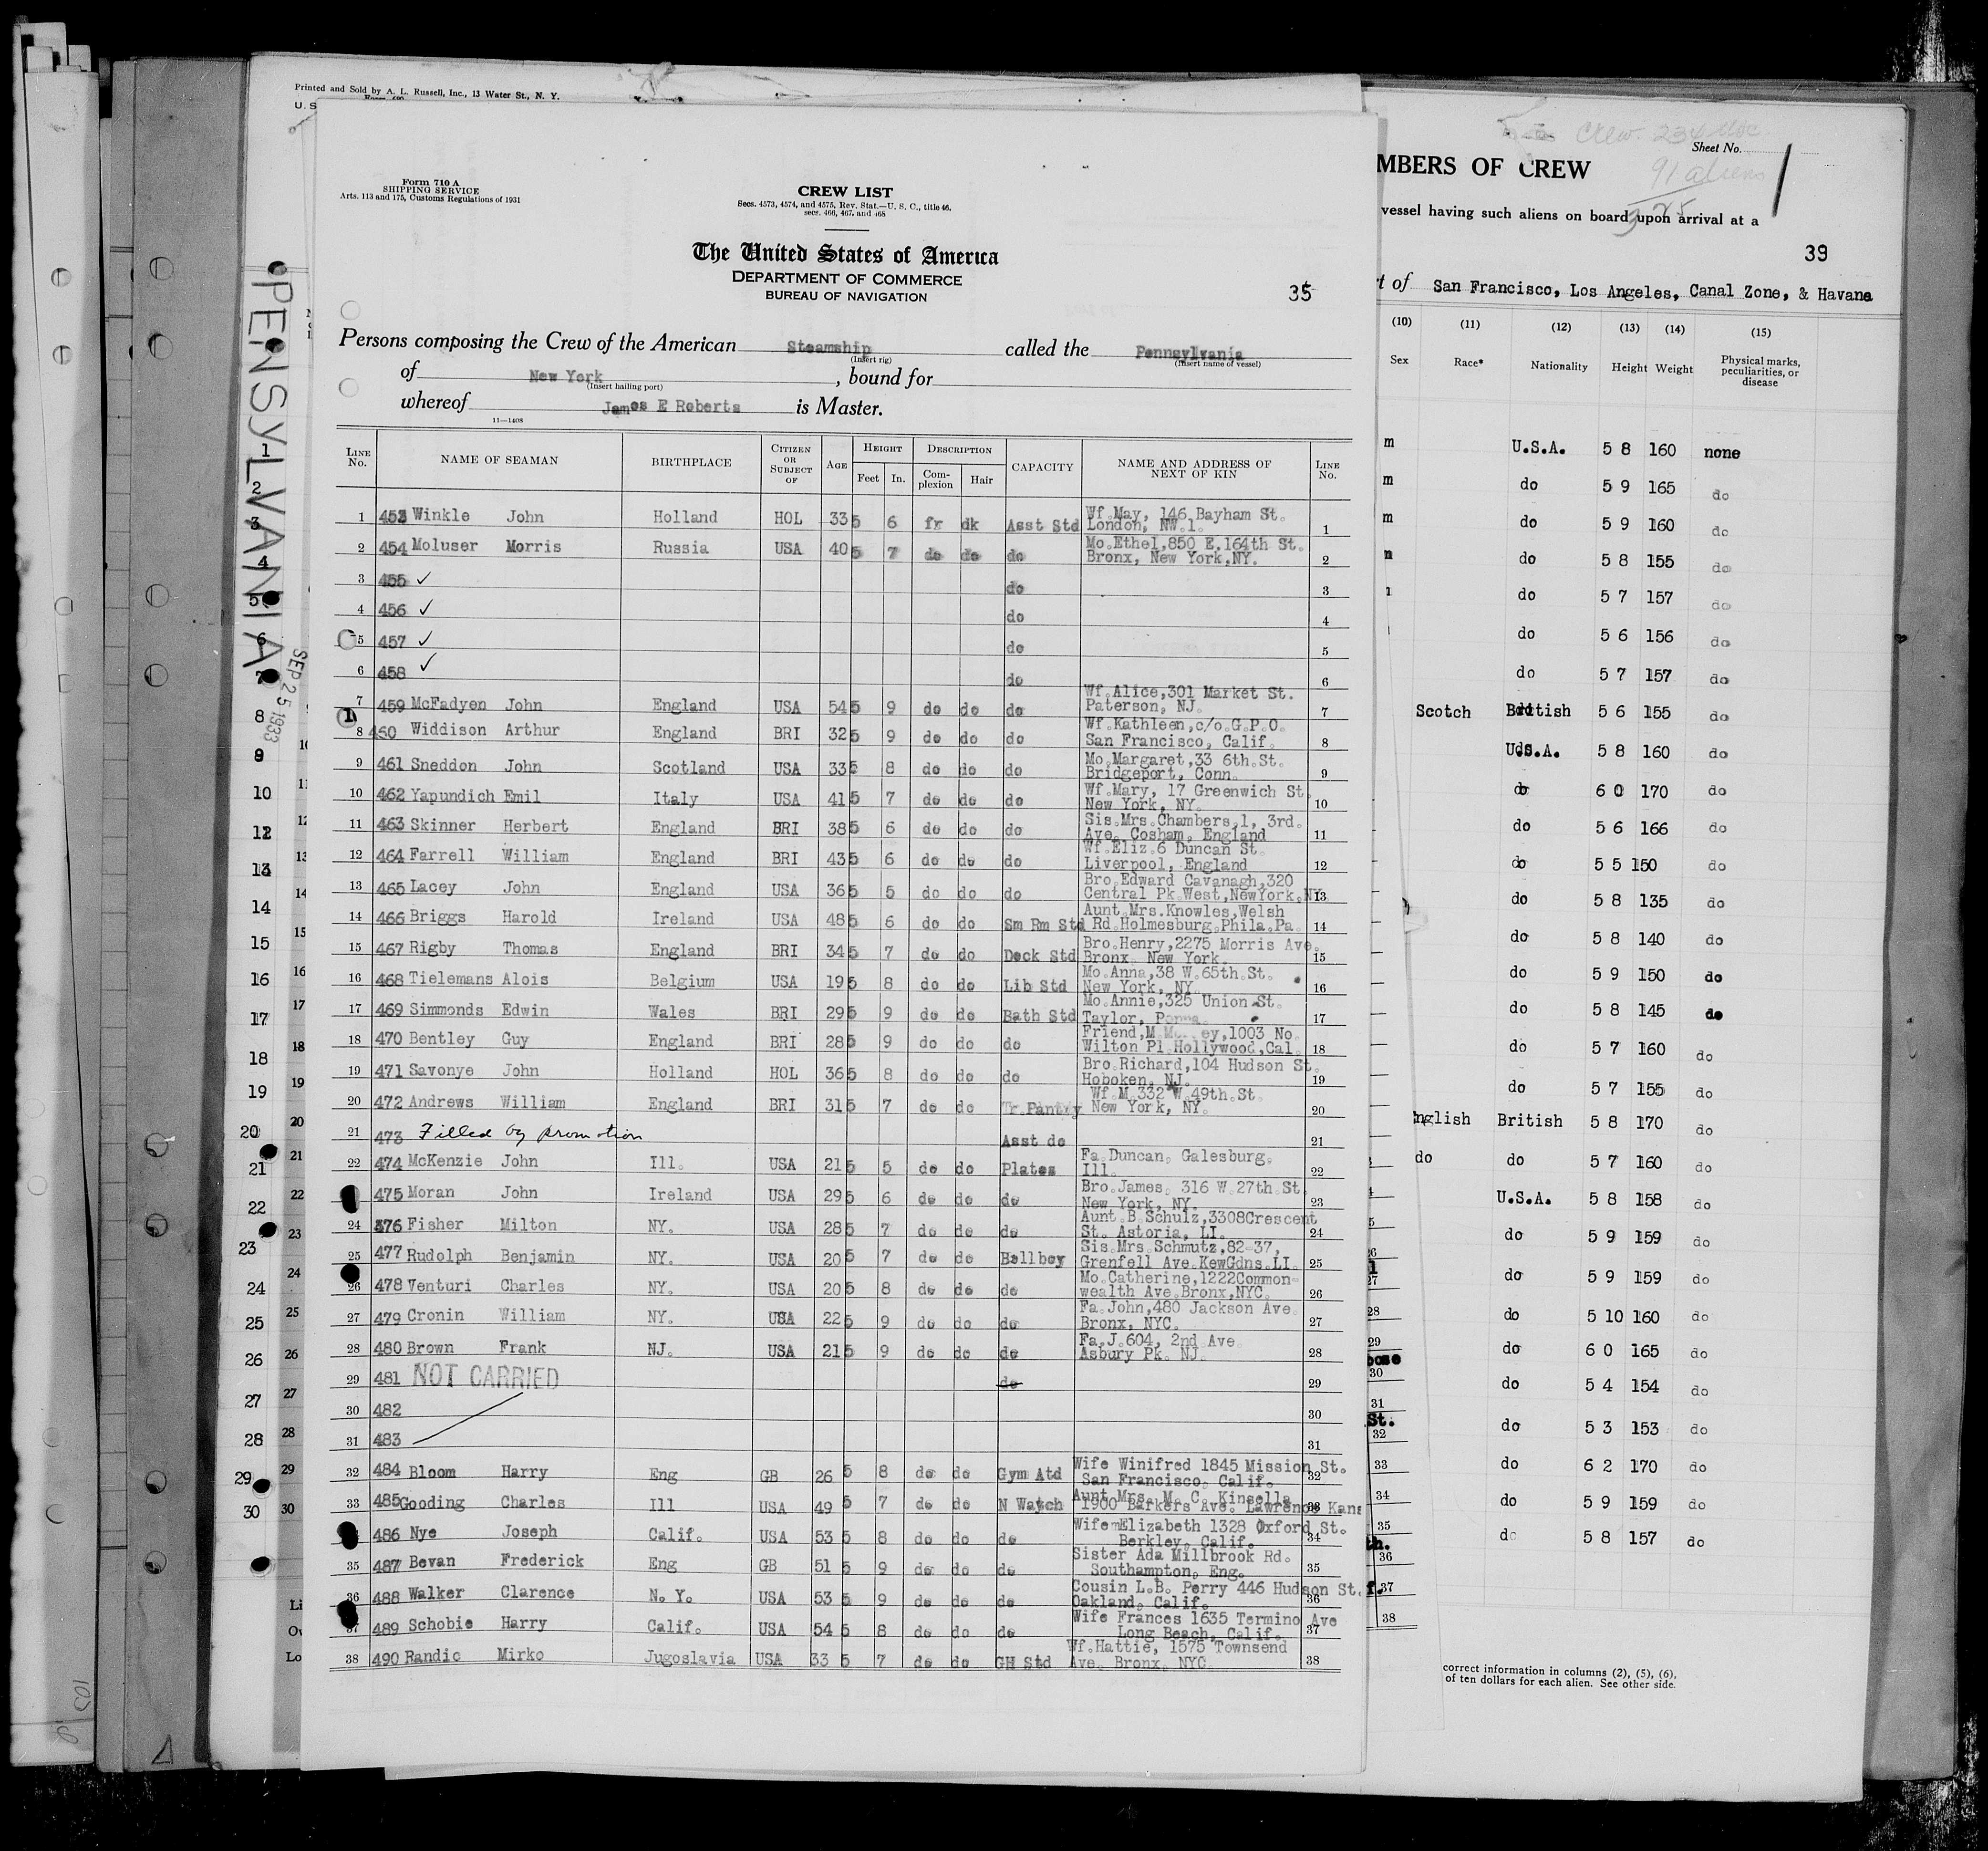 Printed and Sold by A. L. Russell, Inc., 13 Water St., N. Y.
U. S
Form 710 A
SHIPPING SERVICE
Arts. 113 and 175, Customs Regulations of 1931
CREW LIST
Secs. 4573, 4574, and 4575, Rev. Stat.—U. S. C., title 46,
secs. 466, 467, and 468
The United States of America
DEPARTMENT OF COMMERCE
BUREAU OF NAVIGATION
35
Persons composing the Crew of the American Steamship called the Pennsylvania
(Insert rig) (Insert name of vessel)
of New York, bound for
(Insert hailing port)
whereof James E Roberts is Master.
11—1408
LINE No. NAME OF SEAMAN BIRTHPLACE CITIZEN OR SUBJECT OF AGE HEIGHT Feet In. DESCRIPTION Complexion Hair CAPACITY NAME AND ADDRESS OF NEXT OF KIN LINE No.
1 453 Winkle John Holland HOL 33 5 6 fr dk Asst Std Wf.May, 146 Bayham St. London, NW.1. 1
2 454 Moluser Morris Russia USA 40 5 7 do do do Mo.Ethel,850 E.164th St. Bronx, New York,NY. 2
3 455 ✓ do 3
4 456 ✓ do 4
5 457 ✓ do 5
6 458 ✓ do 6
7 459 McFadyen John England USA 54 5 9 do do do Wf.Alice,301 Market St. Paterson, NJ. 7
8 460 Widdison Arthur England BRI 32 5 9 do do do Wf.Kathleen,c/o.G.P.O. San Francisco, Calif. 8
9 461 Sneddon John Scotland USA 33 5 8 do do do Mo.Margaret,33 6th.St. Bridgeport, Conn. 9
10 462 Yapundich Emil Italy USA 41 5 7 do do do Wf.Mary, 17 Greenwich St. New York, NY. 10
11 463 Skinner Herbert England BRI 38 5 6 do do do Sis.Mrs.Chambers,1, 3rd. Ave. Cosham, England 11
12 464 Farrell William England BRI 43 5 6 do do do Wf.Eliz.6 Duncan St. Liverpool, England 12
13 465 Lacey John England USA 36 5 5 do do do Bro.Edward Cavanagh,320 Central Pk.West,NewYork.NY 13
14 466 Briggs Harold Ireland USA 48 5 6 do do Sm Rm Std Aunt.Mrs.Knowles,Welsh Rd.Holmesburg.Phila.Pa. 14
15 467 Rigby Thomas England BRI 34 5 7 do do Deck Std Bro.Henry,2275 Morris Ave. Bronx. New York. 15
16 468 Tielemans Alois Belgium USA 19 5 8 do do Lib Std Mo.Anna,38 W.65th.St. New York, NY. 16
17 469 Simmonds Edwin Wales BRI 29 5 9 do do Bath Std Mo.Annie,325 Union St. Taylor, Penna. 17
18 470 Bentley Guy England BRI 28 5 9 do do do Friend,M 1003 No. Wilton Pl.Hollywood,Cal. 18
19 471 Savonye John Holland HOL 36 5 8 do do do Bro.Richard,104 Hudson St. Hoboken, NJ. 19
20 472 Andrews William England BRI 31 5 7 do do Tr.Pantry Wf.M.332 W.49th.St. New York, NY. 20
21 473 Filled by promotion Asst do 21
22 474 McKenzie John Ill. USA 21 5 5 do do Plates Fa.Duncan, Galesburg, Ill. 22
475 Moran John Ireland USA 29 5 6 do do do Bro.James, 316 W.27th.St. New York, NY. 23
24 476 Fisher Milton NY. USA 28 5 7 do do do Aunt B.Schulz,3308Crescent St. Astoria, LI. 24
25 477 Rudolph Benjamin NY. USA 20 5 7 do do Bellboy Sis.Mrs.Schmutz,82-37, Grenfell Ave.KewGdns.LI. 25
26 478 Venturi Charles NY. USA 20 5 8 do do do Mo.Catherine,1222Common- wealth Ave.Bronx,NYC. 26
27 479 Cronin William NY. USA 22 5 9 do do do Fa.John,480 Jackson Ave. Bronx, NYC. 27
28 480 Brown Frank NJ. USA 21 5 9 do do do Fa.J.604, 2nd.Ave. Asbury Pk. NJ. 28
29 481 NOT CARRIED do 29
30 482 30
31 483 31
32 484 Bloom Harry Eng GB 26 5 8 do do Gym Atd Wife Winifred 1845 Mission St. San Francisco, Calif. 32
33 485 Gooding Charles Ill USA 49 5 7 do do N Watch Aunt Mrs. M. C. Kinsella 1900 Barkers Ave. Lawrence Kans 33
486 Nye Joseph Calif. USA 53 5 8 do do do Wife Elizabeth 1328 Oxford St. Berkley, Calif. 34
35 487 Bevan Frederick Eng GB 51 5 9 do do do Sister Ada Millbrook Rd. Southampton, Eng. 35
36 488 Walker Clarence N. Y. USA 53 5 9 do do do Cousin L.B. Perry 446 Hudson St. Oakland, Calif. 36
37 489 Schobie Harry Calif. USA 54 5 8 do do do Wife Frances 1635 Termino Ave Long Beach, Calif. 37
38 490 Randic Mirko Jugoslavia USA 33 5 7 do do GH Std Wf.Hattie, 1575 Townsend Ave. Bronx, NYC. 38
PENNSYLVANIA
SEP 25 1933
Crew. 234
91 aliens
325
Sheet No.
MBERS OF CREW
vessel having such aliens on board upon arrival at a
39
t of San Francisco, Los Angeles, Canal Zone, & Havana
(10) (11) (12) (13) (14) (15)
Sex Race* Nationality Height Weight Physical marks, peculiarities, or disease
m U.S.A. 5 8 160 none
m do 5 9 165 do
m do 5 9 160 do
do 5 8 155 do
do 5 7 157 do
do 5 6 156 do
do 5 7 157 do
Scotch British 5 6 155 do
U.S.A. 5 8 160 do
do 6 0 170 do
do 5 6 166 do
do 5 5 150 do
do 5 8 135 do
do 5 8 140 do
do 5 9 150 do
do 5 8 145 do
do 5 7 160 do
do 5 7 155 do
nglish British 5 8 170 do
do do 5 7 160 do
U.S.A. 5 8 158 do
do 5 9 159 do
do 5 9 159 do
do 5 10 160 do
do 6 0 165 do
do 5 4 154 do
do 5 3 153 do
do 6 2 170 do
do 5 9 159 do
do 5 8 157 do
correct information in columns (2), (5), (6),
of ten dollars for each alien. See other side.